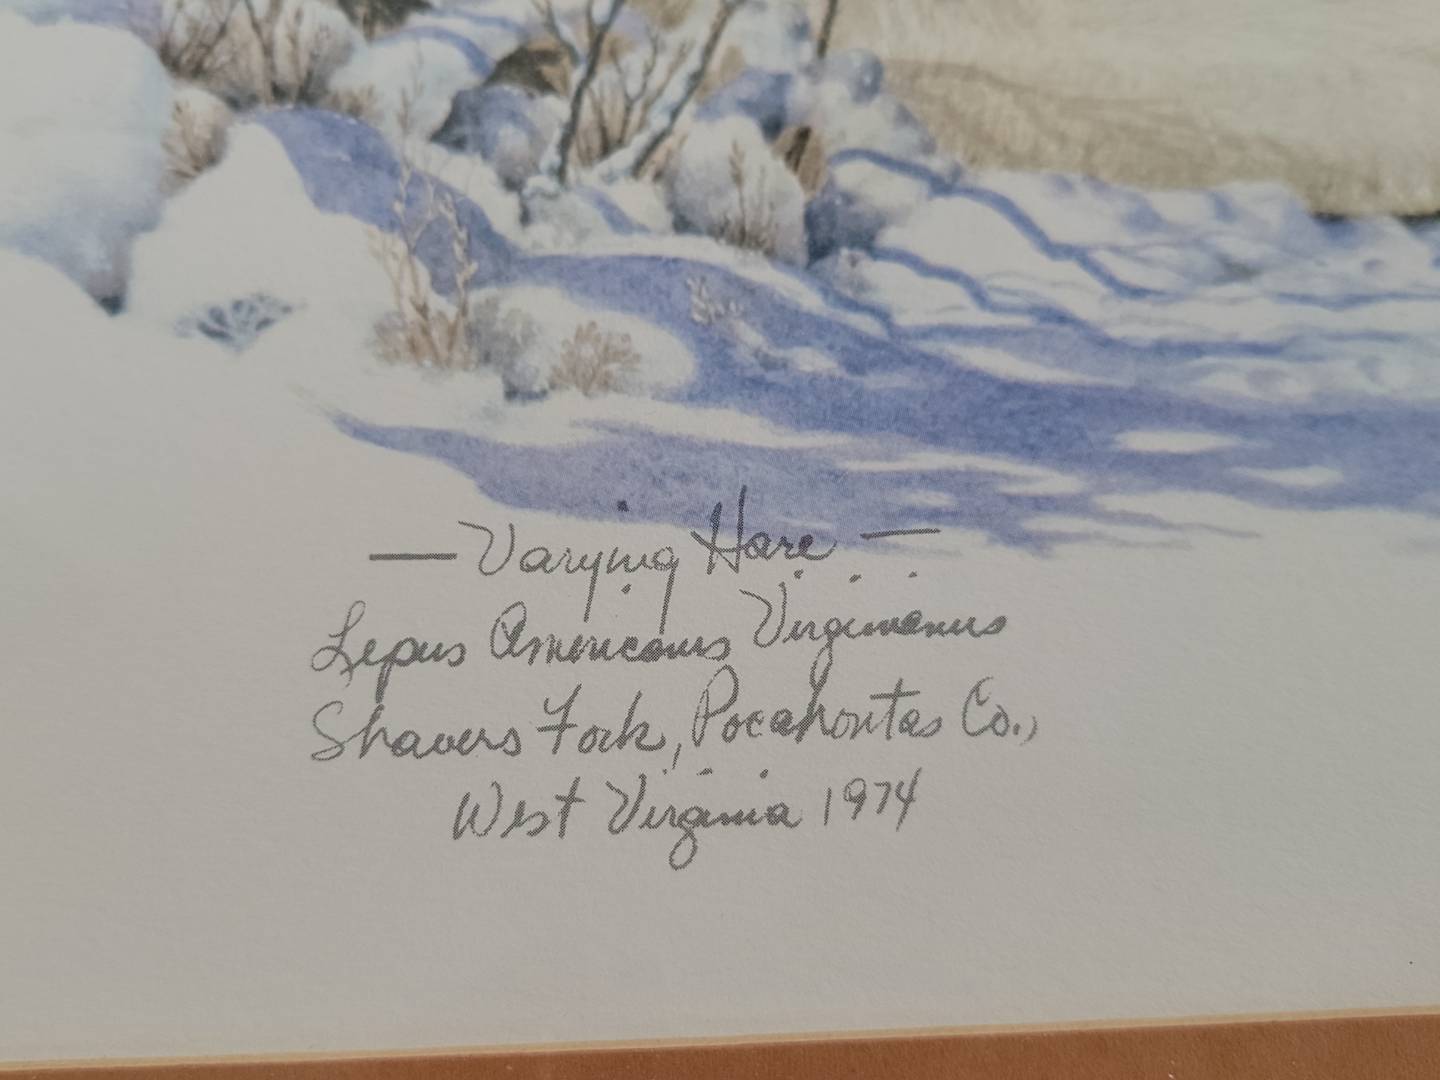 — Varying Hare —
Lepus Americanus Virginianus
Shavers Fork, Pocahontas Co.,
West Virginia 1974